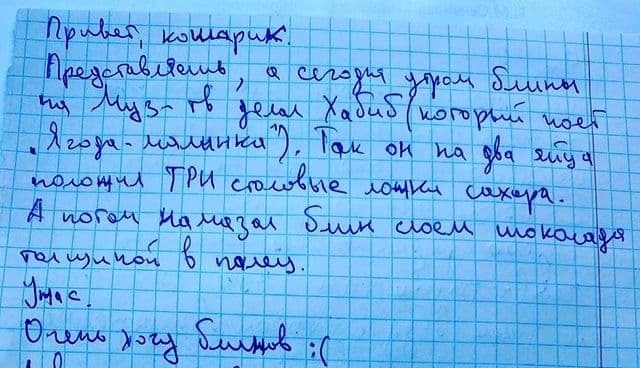 Привет, кошарик.
Представляешь, а сегодня утром блины
на Муз-тв делал Хабиб (который поет
"Ягода-малинка"). Так он на два яйца
положил ТРИ столовые ложки сахара.
А потом намазал блин слоем шоколада
толщиной в палец.
Ужас.
Очень хочу блинов :(